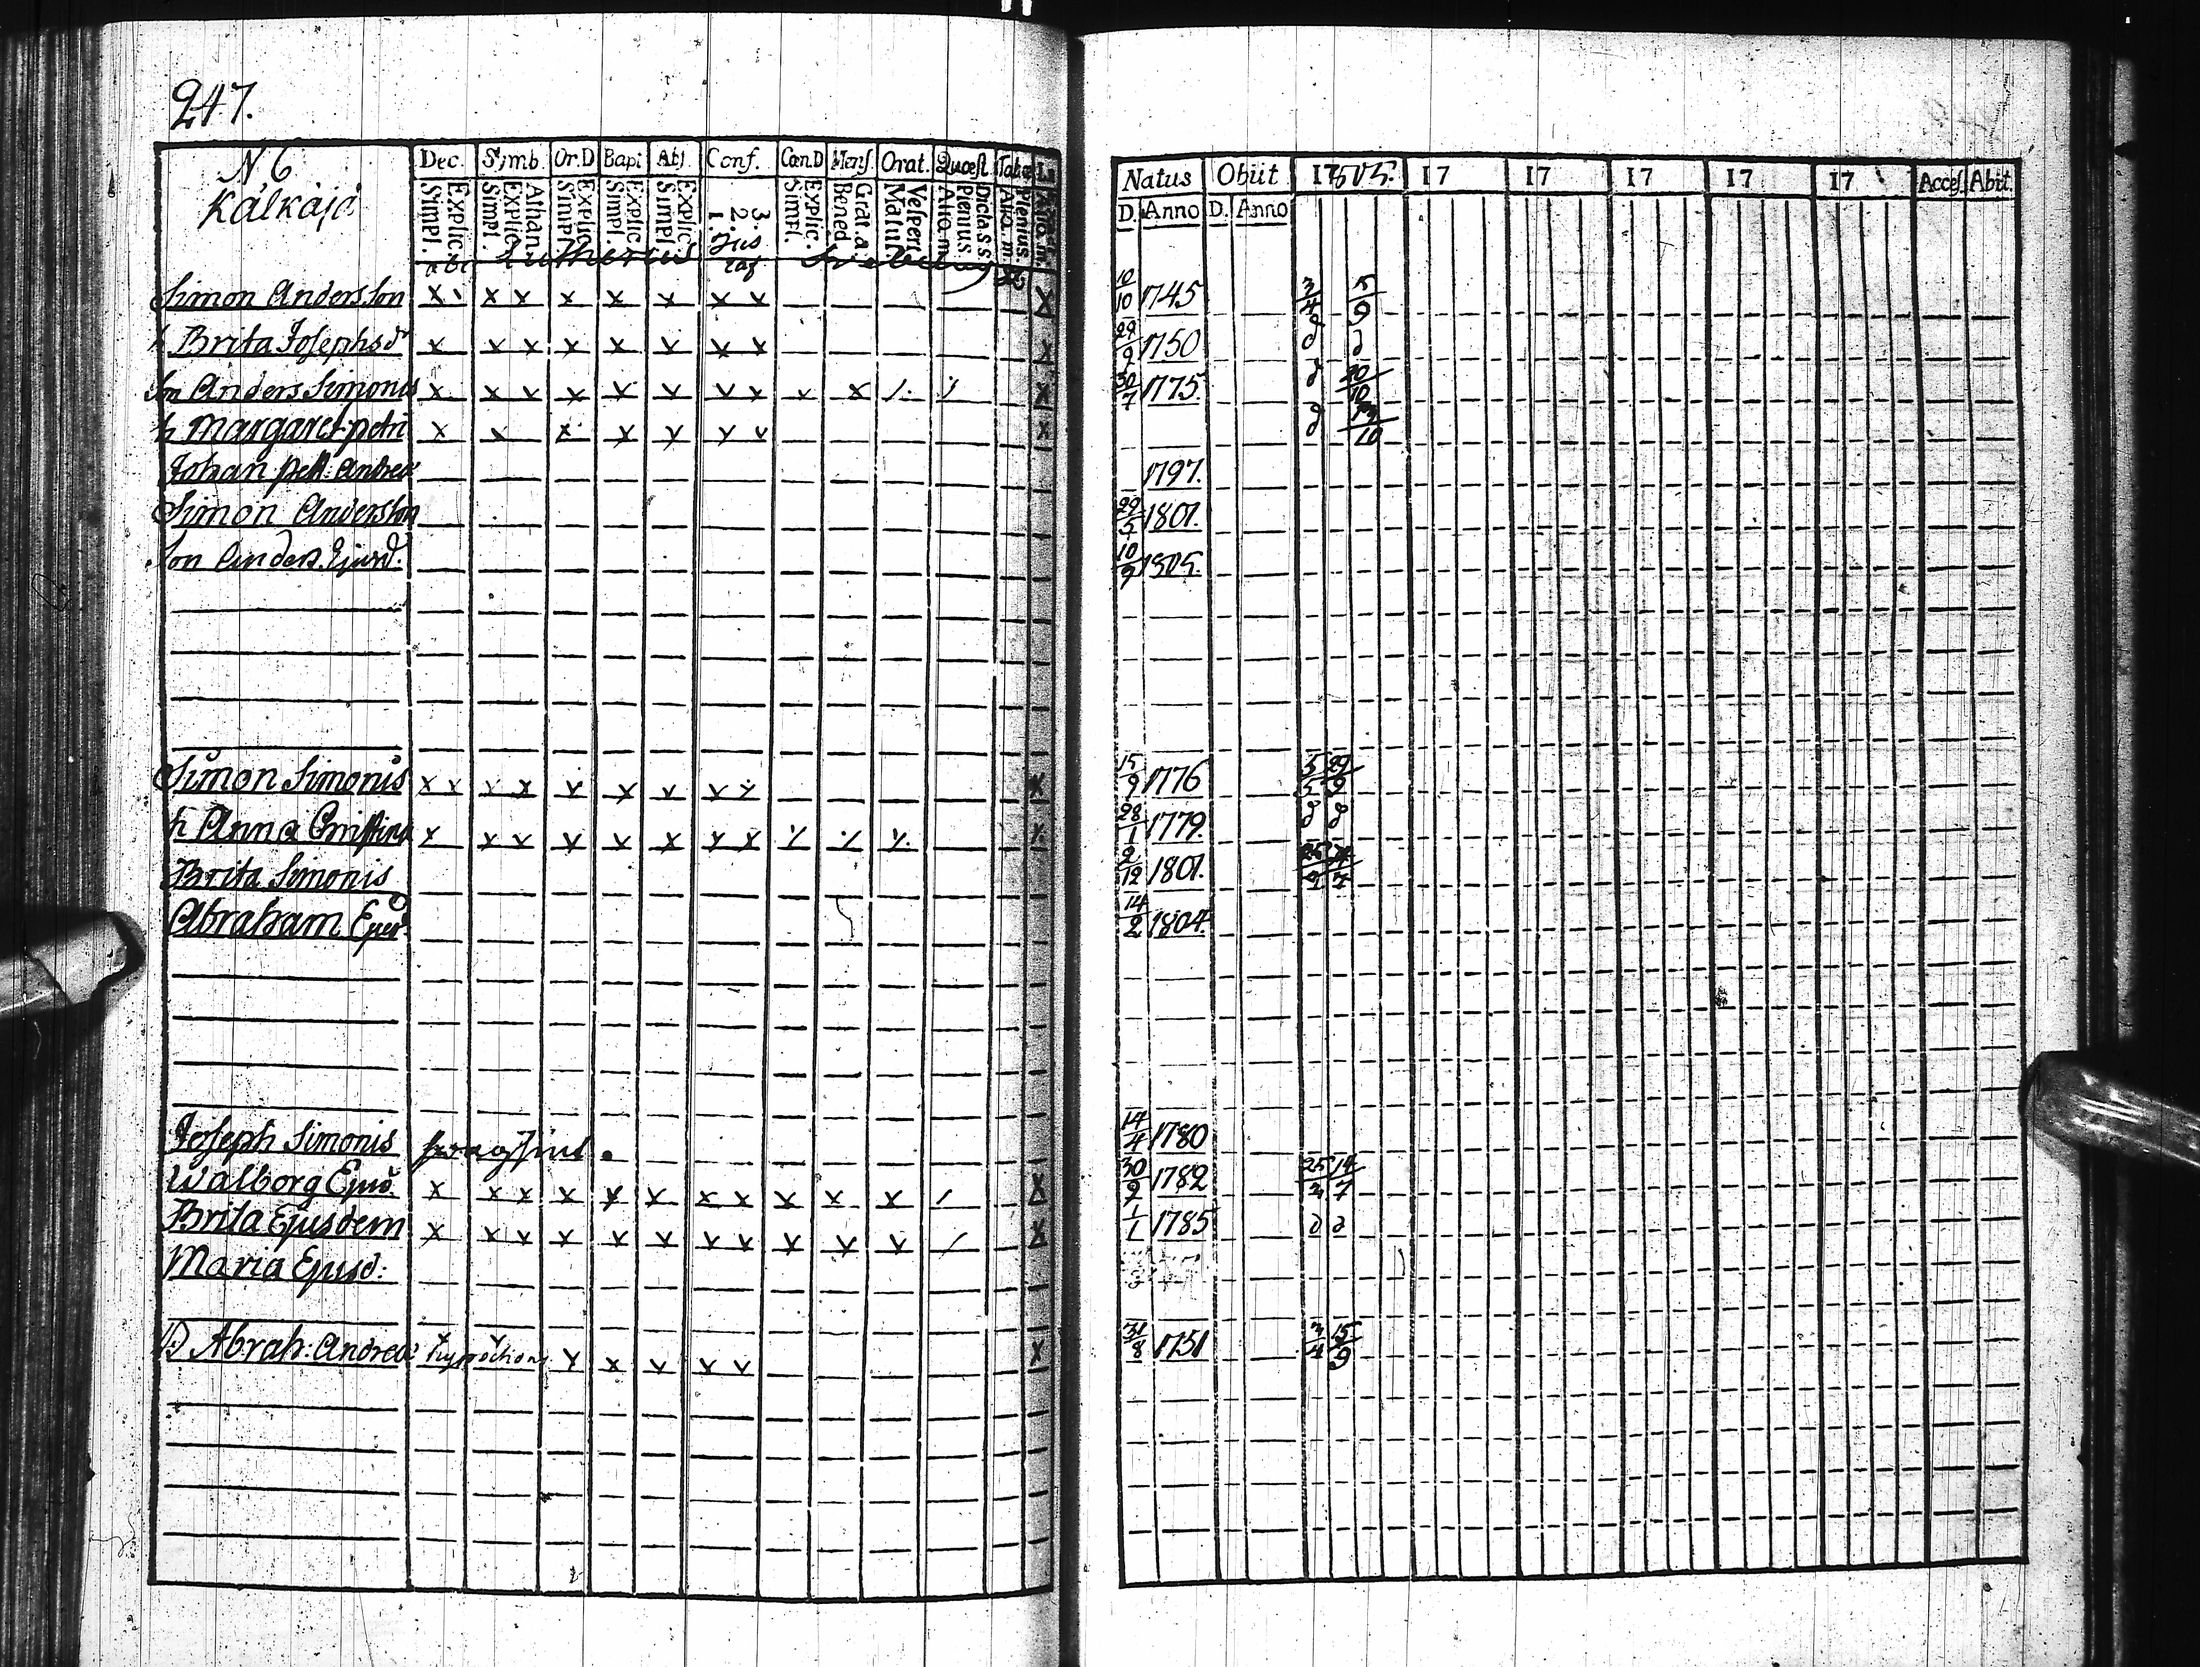 247.
N 6
Kälkäjä
Dec. Simb. Or.D Bapt Abs. Conf. Cœn.D Mens. Orat. Quæst Tabæ
Explic. Simpl. Athan Explic. Simpl. Explic. Simpl. Explic. Simpl. Explic. Simpl. 3. 2. 1. Explic. Simpl. Grat.a. Bened Vespert. Matut. Dicta s.s. Plenius. Aliq.m. Plenius. Aliq.m.
abc Lutherus
Natus Obiit 17 1805. 17 17 17 17 17 Acces. Abiit.
D. Anno D. Anno
Simon Andersson x x x x x x x x x x 10/10 1745 3/4 5/9
h Brita Josephsdr x x x x x x x x x 29/9 1750 d d
son Anders Simonis x x x x x x x x x x x 30/7 1775. d 20/10
h Margaret petri x x x x x x x x d 10
Johan Andreæ 1797.
Simon Andersson 29/5 1801.
Son Anders Ejusd. 10/9 1805.
Simon Simonis x x x x x x x x x x 15/9 1776 5/5 29/9
h Anna Christina x x x x x x x x x x x x 28/1 1779. d d
Brita Simonis 2/12 1801.
Abraham Ejusd 14/2 1804.
Joseph Simonis 14/4 1780
Walborg Ejusd. x x x x x x x x x x x x 30/9 1782 25/3 14/7
Brita Ejusdem x x x x x x x x x x x x 1/1 1785 d d
Maria Ejusd:
Abrah: Andreæ hypochon x x x x x x 31/8 1751 3/4 15/9